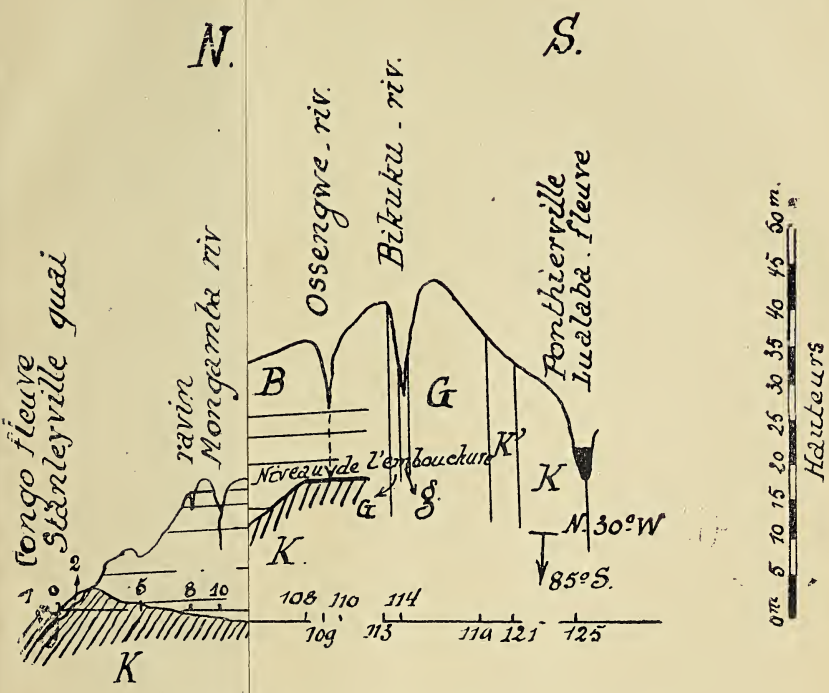 N.
S.
Congo fleuve
Stanleyville quai
ravin
Mongamba riv
Ossengwe - riv.
Bikuku - riv.
Ponthierville
Lualaba - fleuve
B
G
K'
K
Niveau de l'embouchure
G
g.
K.
N. 30º W
85º S.
1 0 2 5 8 10
108 109 110 113 114 119 121 125
K
0m 5 10 15 20 25 30 35 40 45 50 m.
Hauteurs